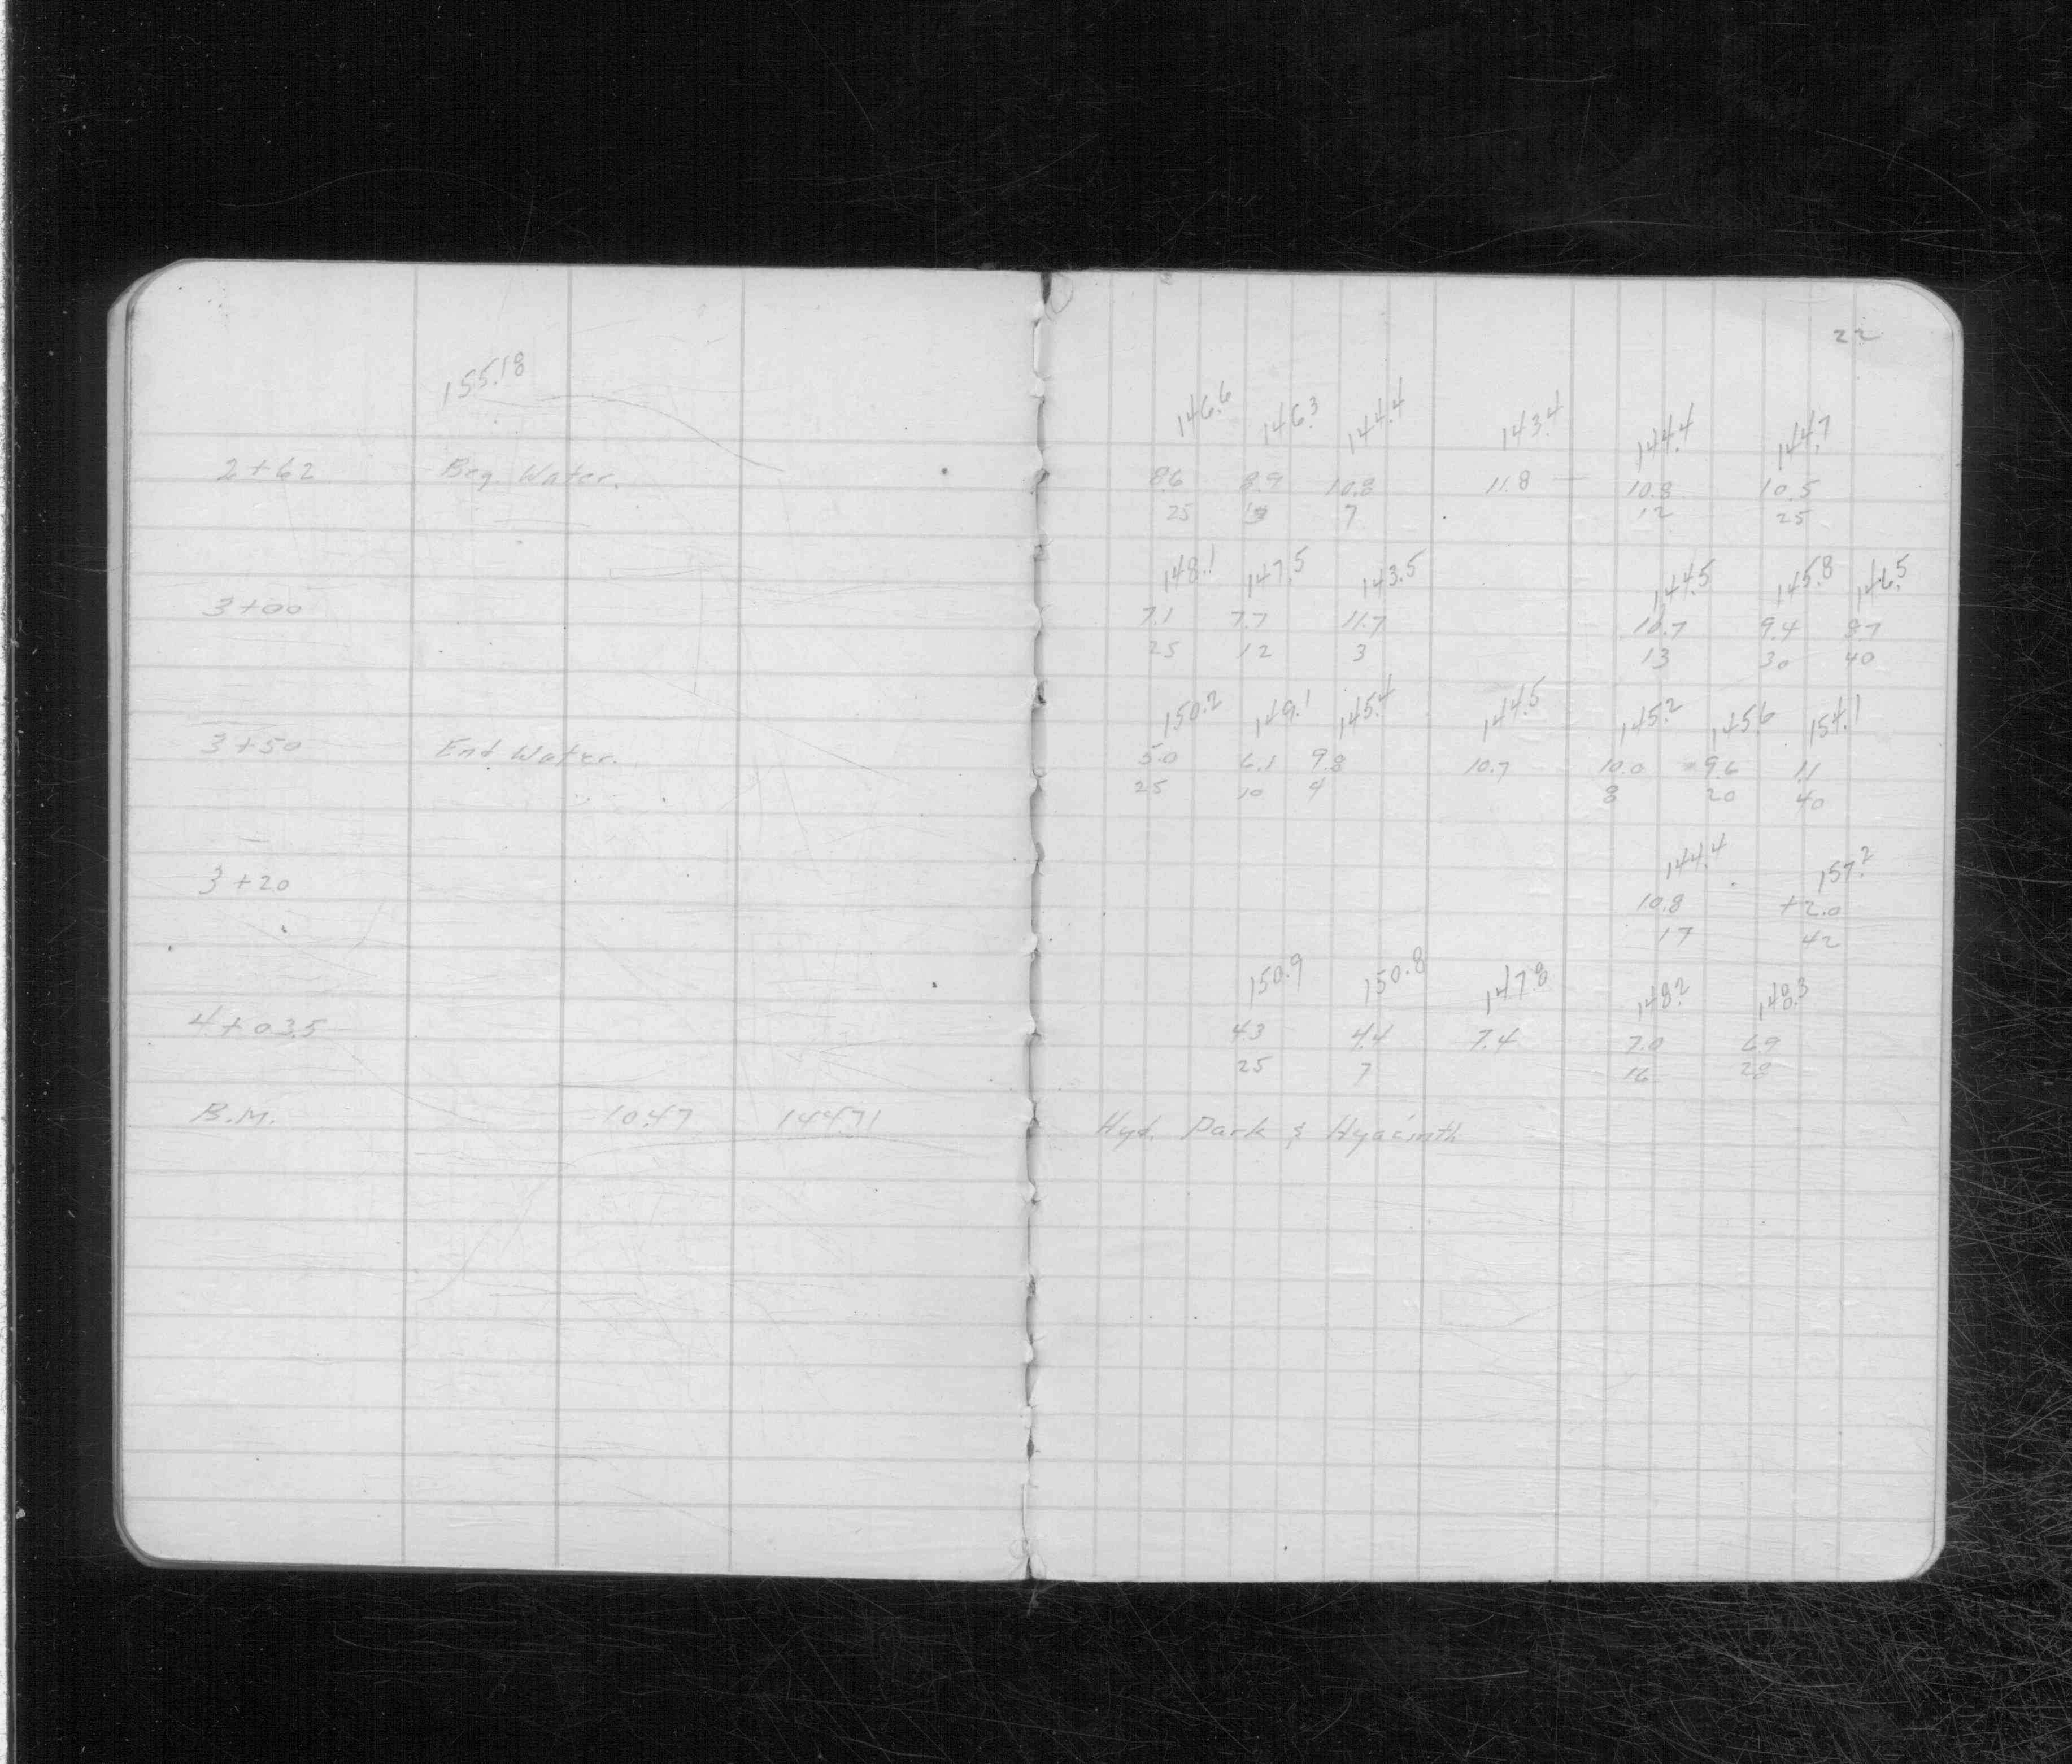 22
155.18
146.6 146.3 144.4 143.4 144.4 144.7
2+62 Beg. Water. 8.6 8.9 10.8 11.8 10.8 10.5
25 7 12 25
148.1 147.5 143.5 144.5 145.8 146.5
3+00 7.1 7.7 11.7 10.7 9.4 8.7
25 12 3 13 30 40
150.2 149.1 145.4 144.5 145.2 145.6 154.1
3+50 End Water. 5.0 6.1 9.8 10.7 10.0 9.6 1.1
25 10 4 8 20 40
144.4 157.2
3+20 10.8 +2.0
17 42
150.9 150.8 147.8 148.2 148.3
4+03.5 4.3 4.4 7.4 7.0 6.9
25 7 16 28
B.M. 10.47 144.71 Hyd. Park & Hyacinth